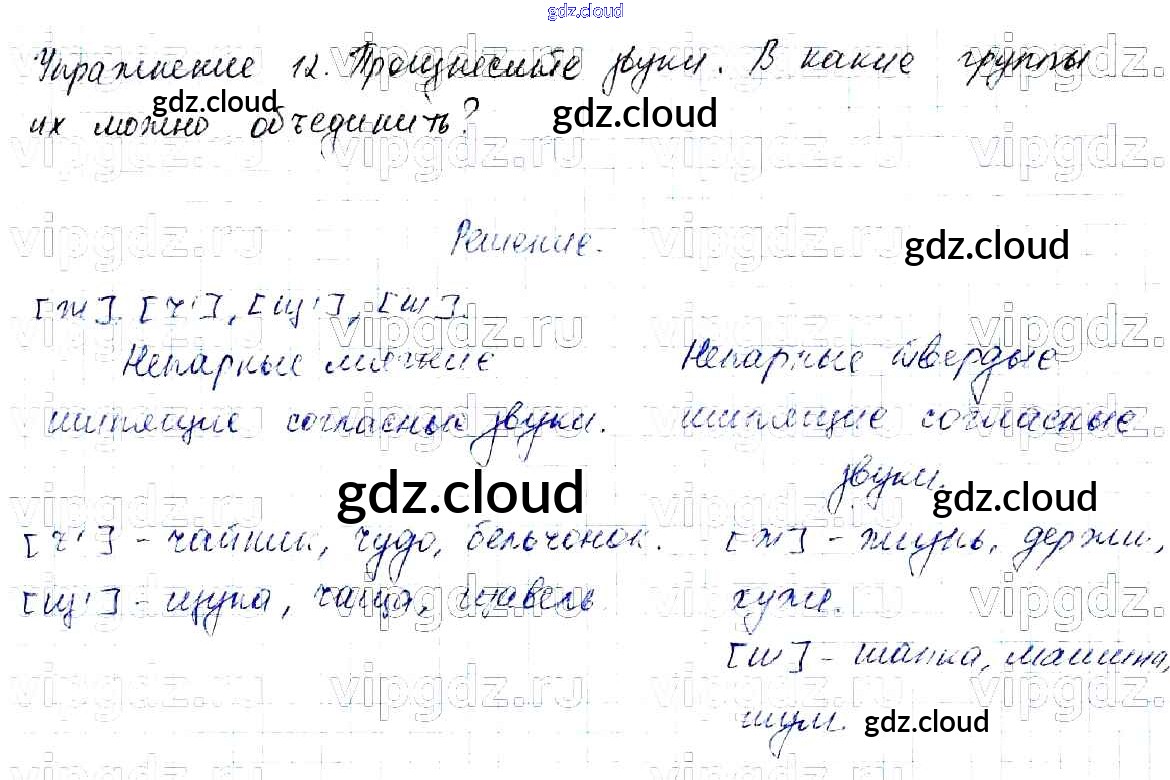 gdz.cloud
Упражнение 12. Произнесите звуки. В какие группы
их можно объединить?
gdz.cloud gdz.cloud
Решение.
gdz.cloud
[ж]. [ч'], [щ'], [ш].
Непарные мягкие
шипящие согласные звуки.
Непарные твердые
шипящие согласные
звуки.
gdz.cloud gdz.cloud
[ч'] - чайник, чудо, бельчонок.
[щ'] - щука, чаща, щавель
[ж] - жизнь, держи,
хуже.
[ш] - шапка, машина,
шум.
gdz.cloud
vipgdz.ru